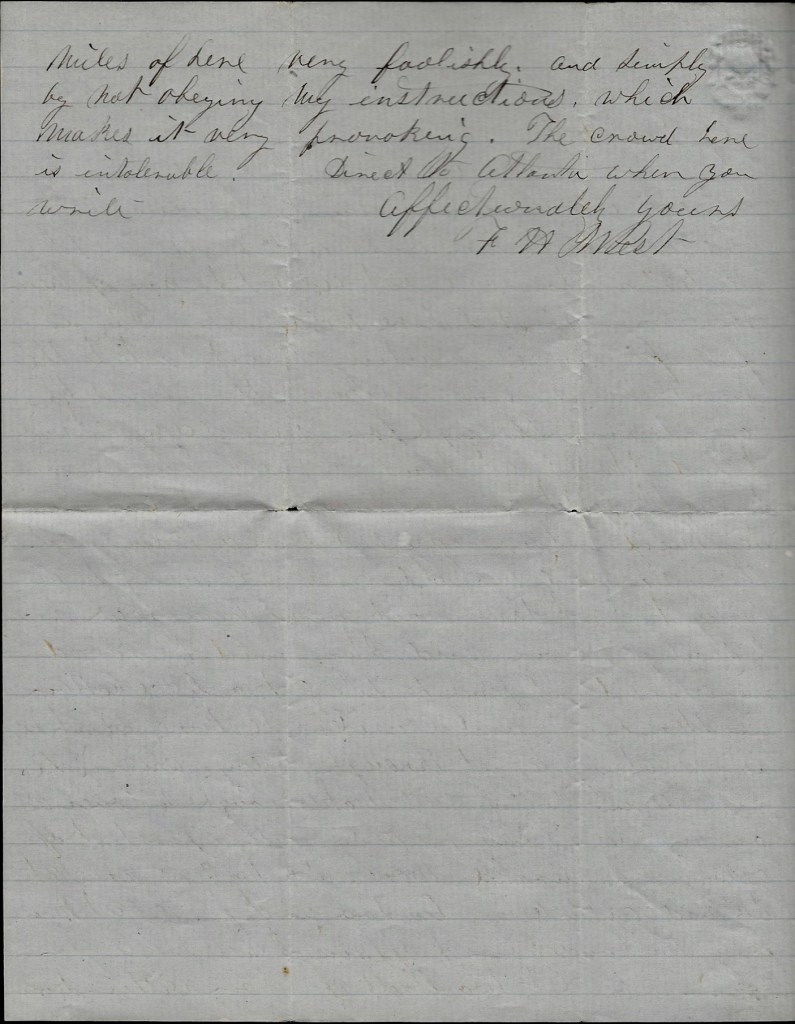 miles of here very foolishly. and simply
by not obeying my instructions, which
makes it very provoking. The crowd here
is intolerable. Direct to Atlanta when you
write Affectionately yours
F H West